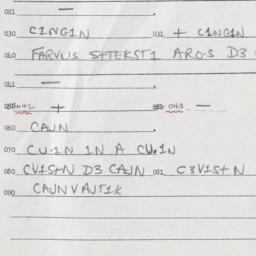 021 —
030 CINGIN 031 + CINGIN
060 FARVUS STTEKST1 AROS D3
041 —
042 + 043 —
060 CAJN
070 CU.IN IN A CU.IN
080 CVIStN D3 CAJN 081 C3VIStN
090 CAJNVAJTIK